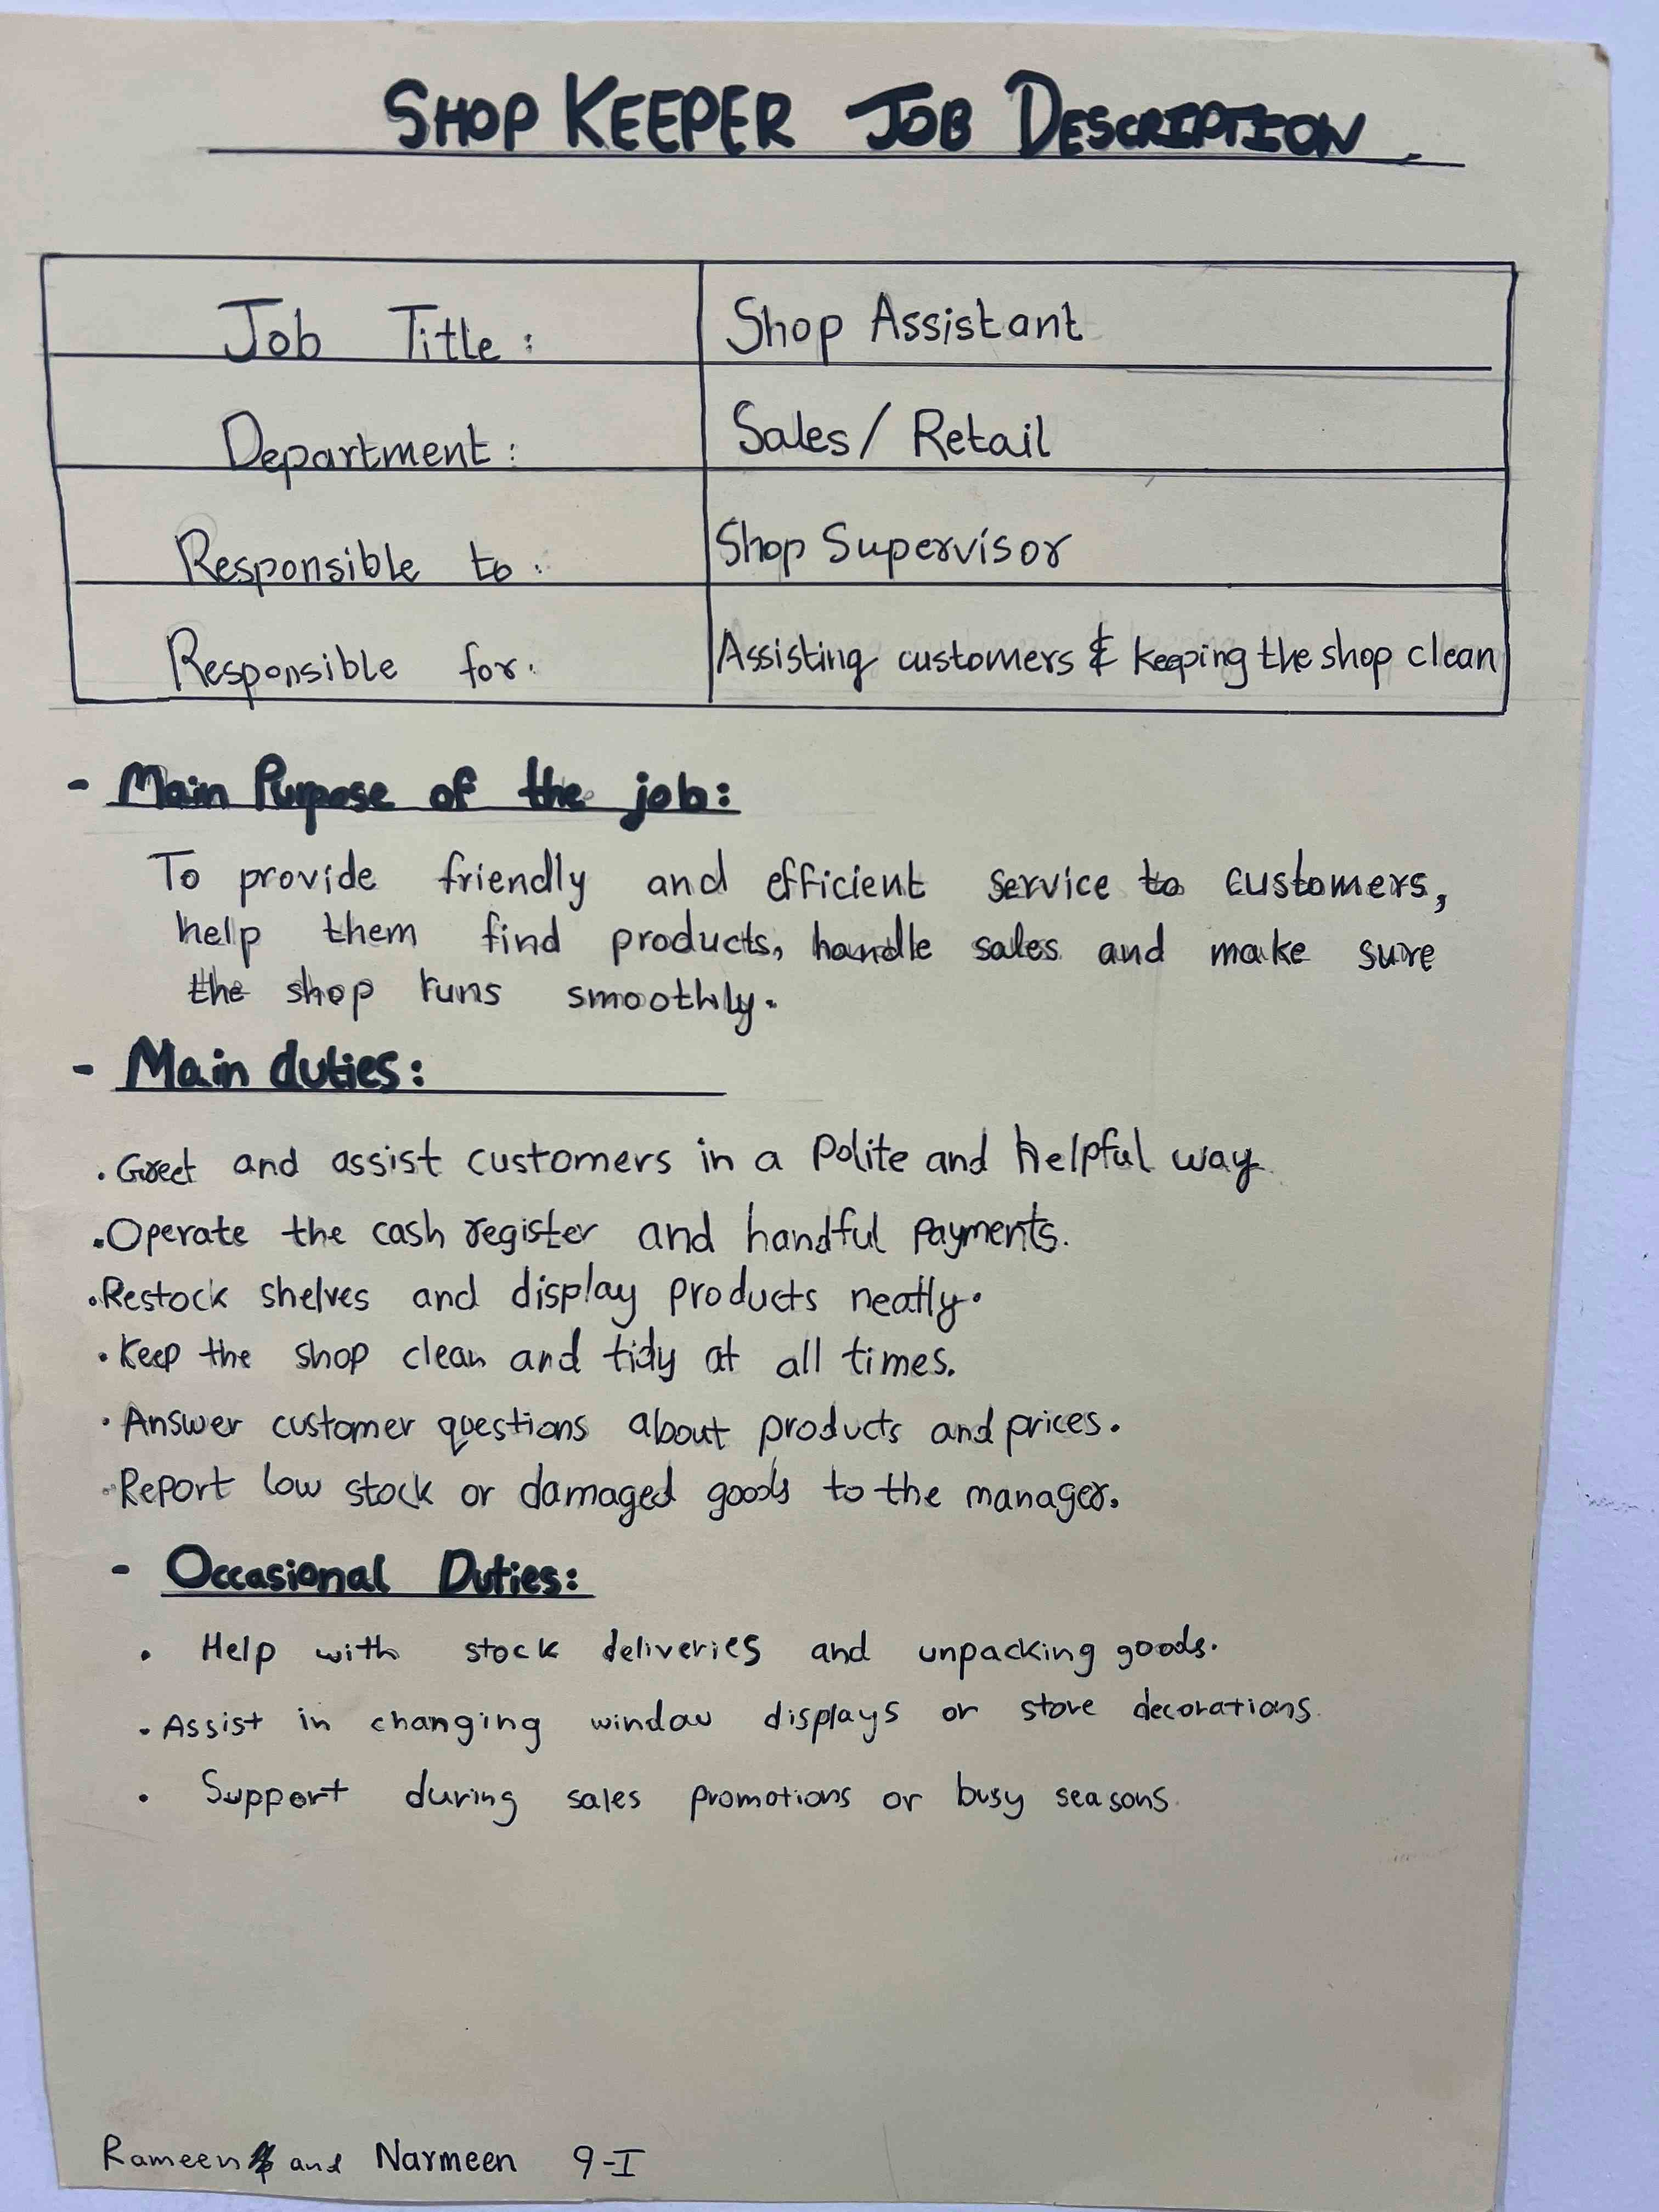 SHOP KEEPER JOB DESCRIPTION.
Job Title: Shop Assistant
Department: Sales/ Retail
Responsible to: Shop Supervisor
Responsible for: Assisting customers & keeping the shop clean
- Main Purpose of the job:
To provide friendly and efficient service to customers,
help them find products, handle sales and make sure
the shop runs smoothly.
- Main duties:
. Greet and assist customers in a Polite and helpful way
. Operate the cash register and handful Payments.
. Restock shelves and display products neatly.
. Keep the shop clean and tidy at all times.
. Answer customer questions about products and prices.
. Report low stock or damaged goods to the manager.
- Occasional Duties:
. Help with stock deliveries and unpacking goods.
. Assist in changing window displays or store decorations.
. Support during sales promotions or busy seasons.
Rameen and Narmeen 9-I